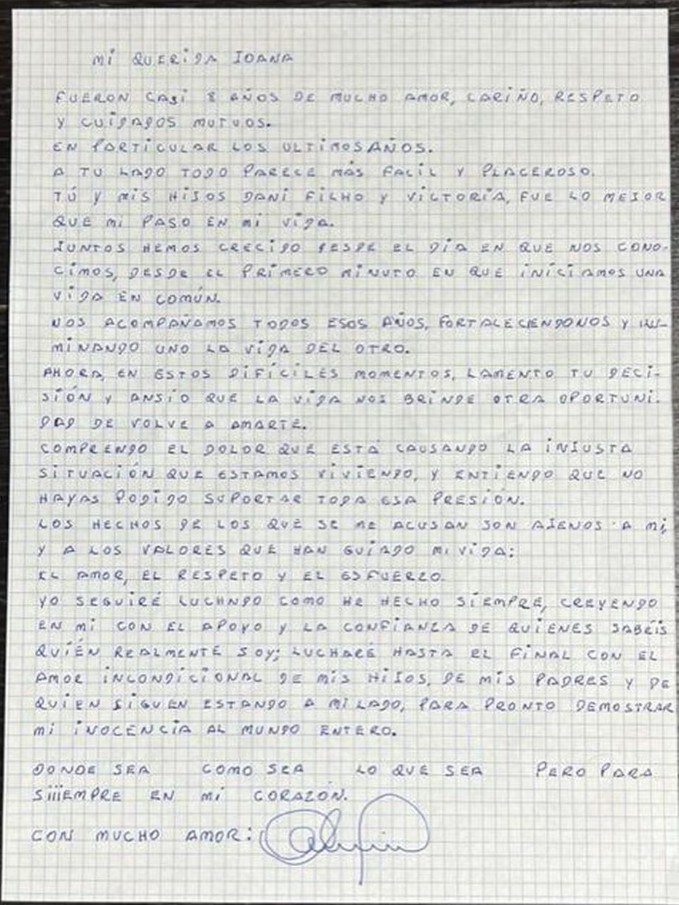 MI QUERIDA IOANA
FUERON CASI 8 AÑOS DE MUCHO AMOR, CARIÑO, RESPETO
Y CUIDADOS MUTUOS.
EN PARTICULAR LOS ULTIMOS AÑOS.
A TU LADO TODO PARECE MÁS FACIL Y PLACEROSO.
TÚ Y MIS HIJOS DANI FILHO Y VICTORIA, FUE LO MEJOR
QUE MI PASO EN MI VIDA.
JUNTOS HEMOS CRECIDO DESDE EL DÍA EN QUE NOS CONO-
CIMOS, DESDE EL PRIMERO MINUTO EN QUE INICIAMOS UNA
VIDA EN COMÚN.
NOS ACOMPAÑAMOS TODOS ESOS AÑOS, FORTALECIENDONOS Y ILU-
MINANDO UNO LA VIDA DEL OTRO.
AHORA, EN ESTOS DIFÍCILES MOMENTOS, LAMENTO TU DECI-
SIÓN Y ANSIO QUE LA VIDA NOS BRINDE OTRA OPORTUNI-
DAD DE VOLVE A AMARTE.
COMPRENDO EL DOLOR QUE ESTÁ CAUSANDO LA INJUSTA
SITUACIÓN QUE ESTAMOS VIVIENDO, Y ENTIENDO QUE NO
HAYAS PODIDO SUPORTAR TODA ESA PRESIÓN.
LOS HECHOS DE LOS QUE SE ME ACUSAN SON AJENOS A MI,
Y A LOS VALORES QUE HAN GUIADO MI VIDA:
EL AMOR, EL RESPETO Y EL ESFUERZO.
YO SEGUIRÉ LUCHNDO COMO HE HECHO SIEMPRE, CREYENDO
EN MI CON EL APOYO Y LA CONFIANZA DE QUIENES SABÉIS
QUIÉN REALMENTE SOY; LUCHARÉ HASTA EL FINAL CON EL
AMOR INCONDICIONAL DE MIS HIJOS, DE MIS PADRES Y DE
QUIEN SIGUEN ESTANDO A MI LADO, PARA PRONTO DEMOSTRAR
MI INOCENCIA AL MUNDO ENTERO.
DONDE SEA COMO SEA LO QUE SEA PERO PARA
SIIIEMPRE EN MI CORAZÓN.
CON MUCHO AMOR: